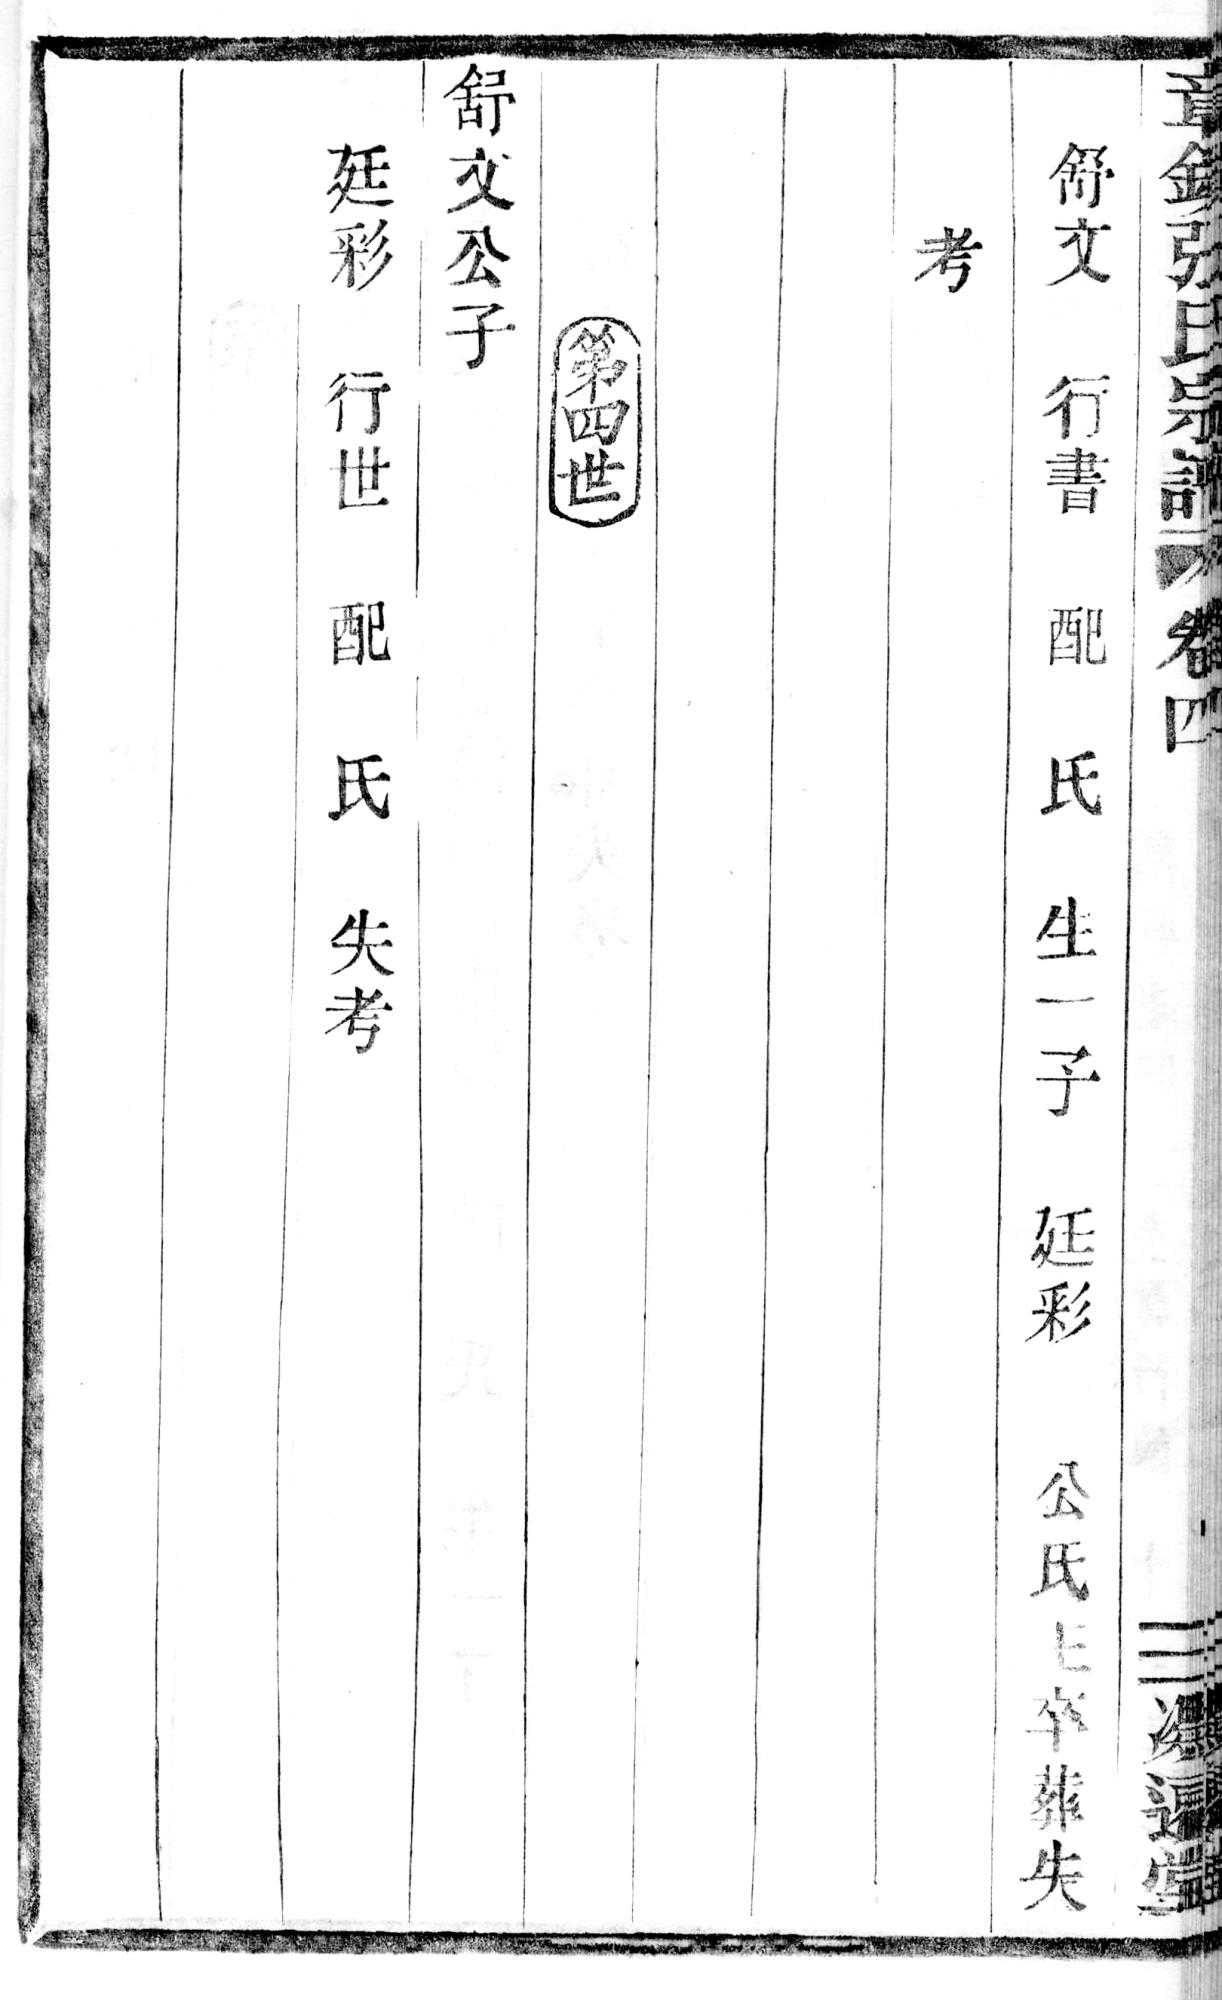 張氏宗譜 卷四
舒文 行書 配 氏 生一子 廷彩 公氏生卒葬失
考
第四世
舒文公子
廷彩 行世 配 氏 失考